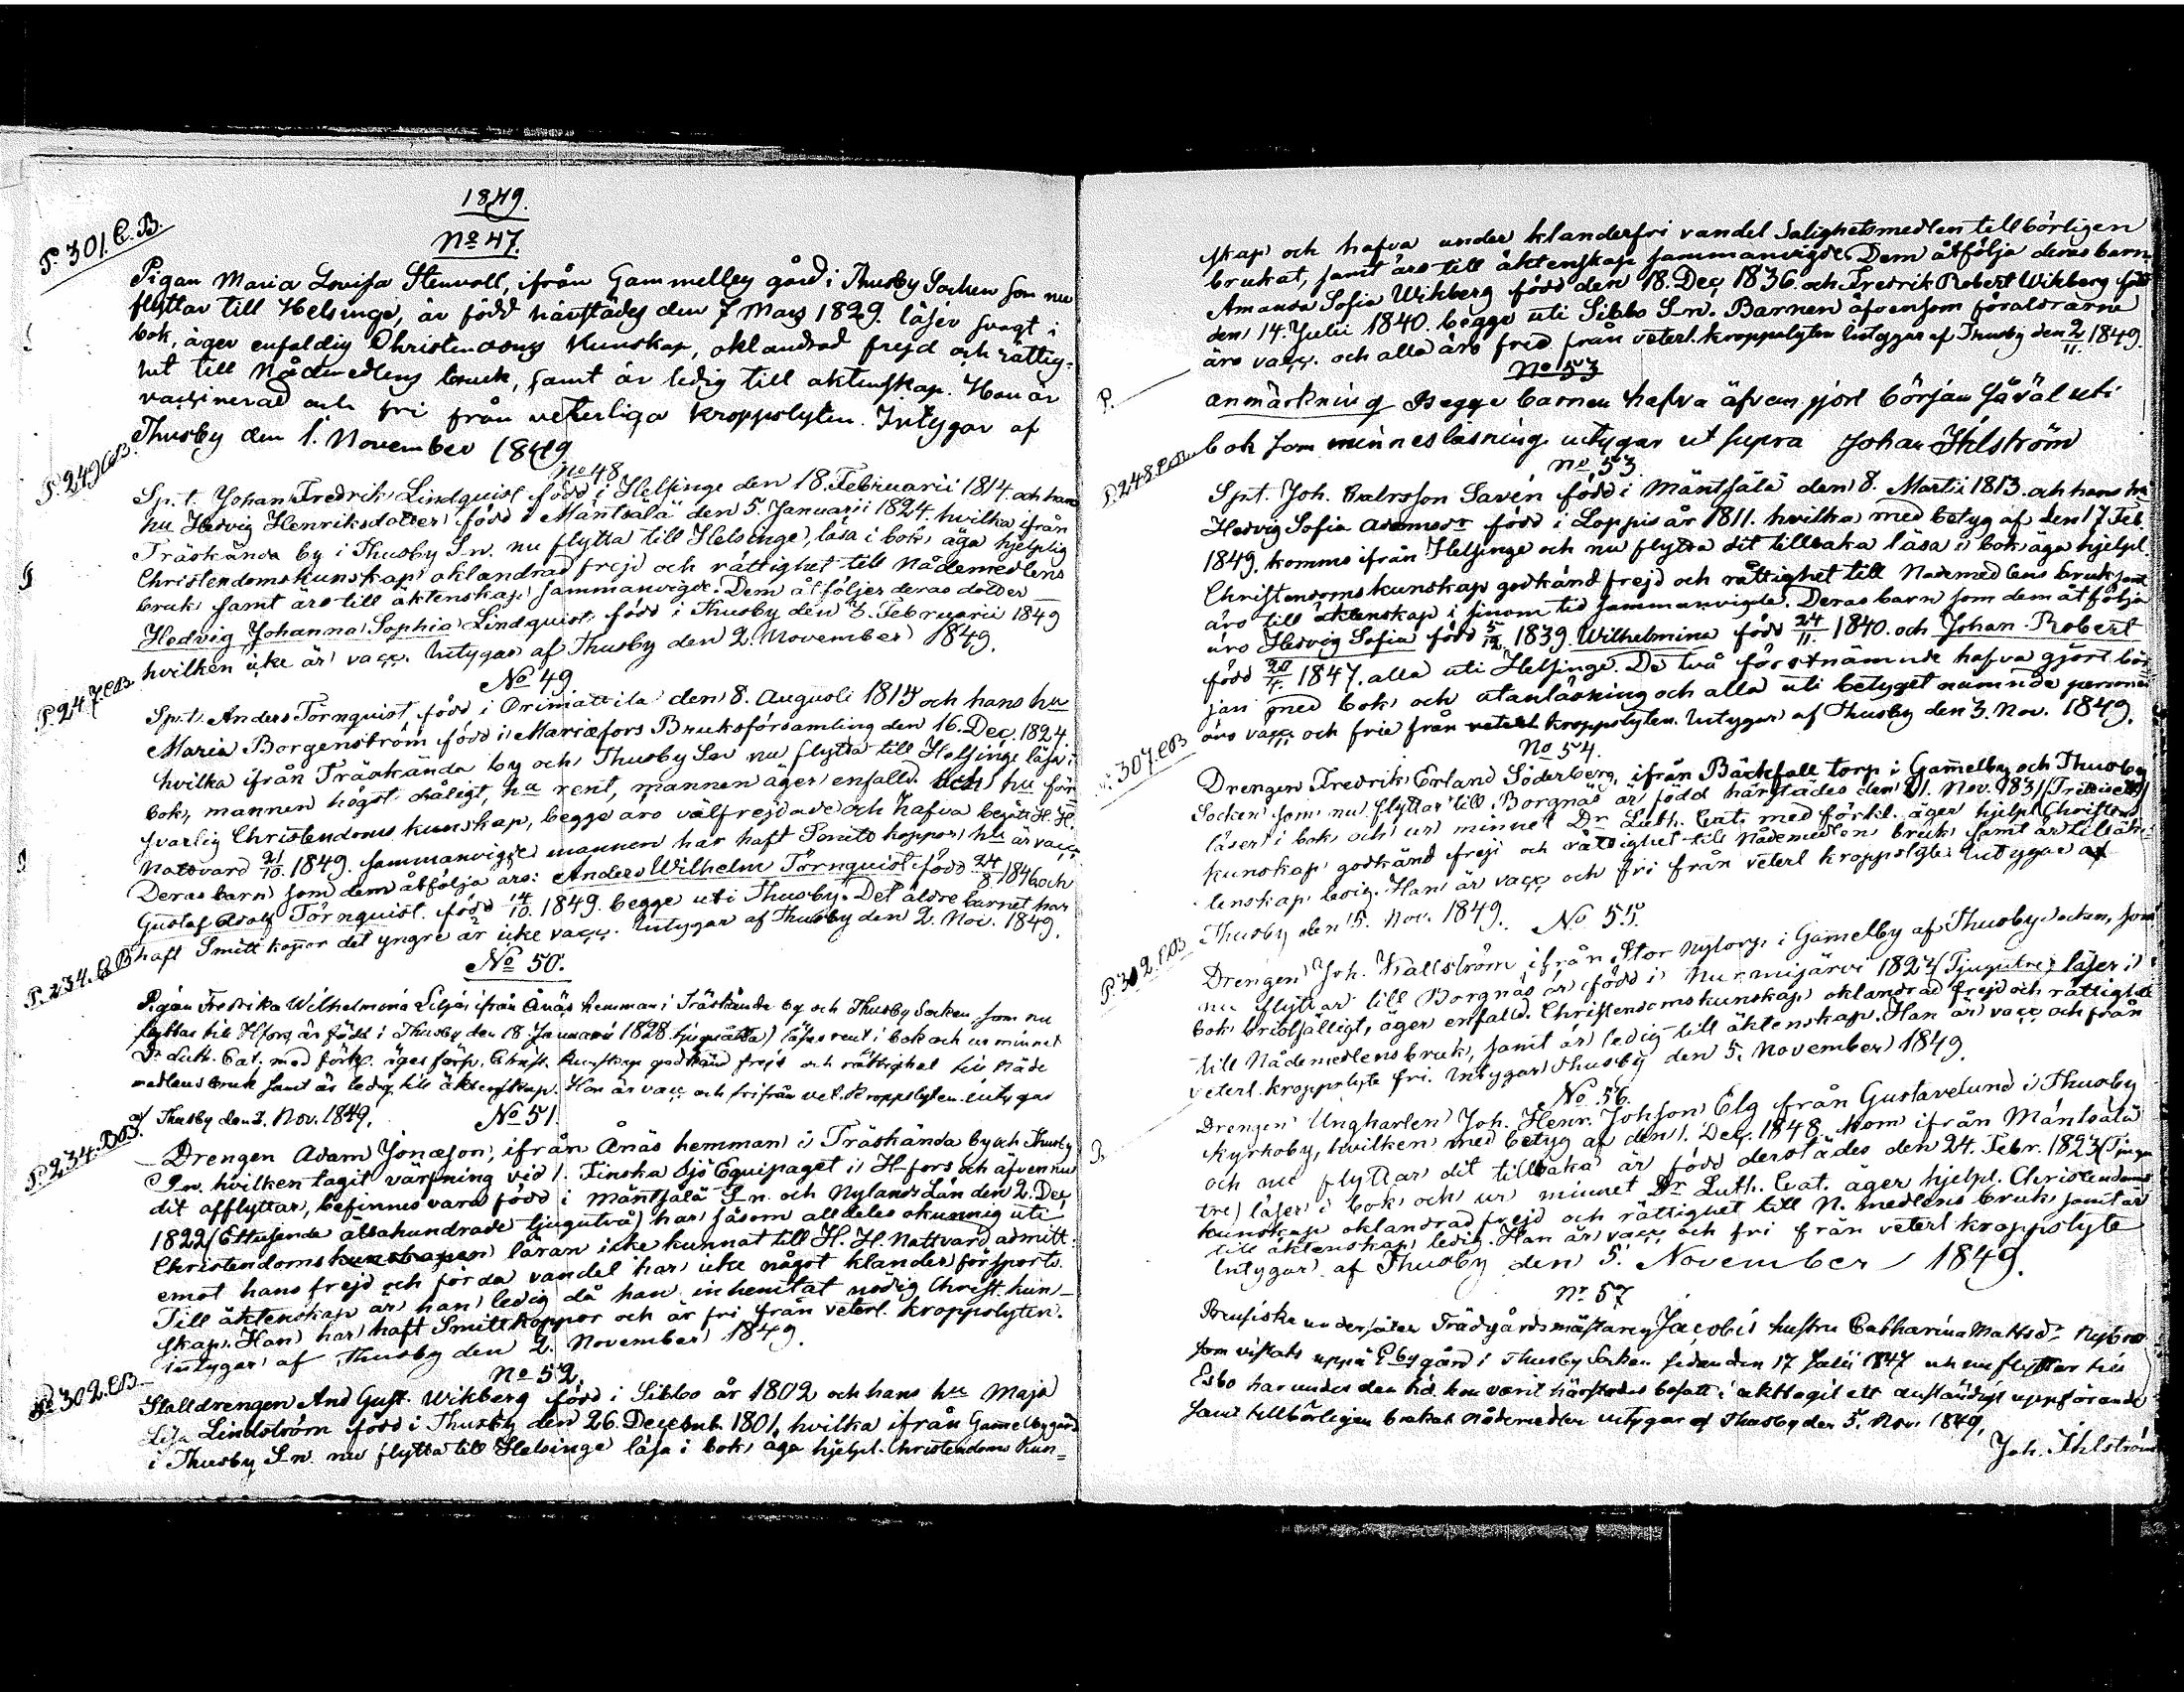 1849.
P. 301. C.B.
No 47.
Pigan Maria Lovisa Stenvall, ifrån Gammelby gård i Thusby Socken som nu
flyttar till Helsinge, är född härstädes den 7 Mars 1829. läser svagt i
bok, äger enfaldig Christendoms kunskap, oklandrad frejd och rättig-
het till Nådemedlens bruk, samt är ledig till äktenskap. Hon är
vaccinerad och fri från veterliga kroppslyten. Intygar af
Thusby den 1. November 1849
P. 249 CB.
No 48
Sp. t. Johan Fredrik Lindquist född i Helsinge den 18. Februarii 1814. och hans
hu Hedvig Henriksdotter född i Mäntsälä den 5. Januarii 1824. hvilka ifrån
Träskända by i Thusby S-n. nu flytta till Helsinge, läsa i bok, äga hjelplig
Christendomskunskap, oklandrad frejd och rättighet till Nådemedlens
bruk, samt äro till äktenskap sammanvigde. Dem åtföljer deras dotter
Hedvig Johanna Sophia Lindquist född i Thusby den 3. Februarii 1849
hvilken icke är vacc. Intygar af Thusby den 2. November 1849.
P. 247 CB
No 49
Sp. t. Anders Törnquist, född i Orimattila den 8. Augusti 1815 och hans hu
Maria Borgenström född i Mariæfors Bruksförsamling den 16. Dec. 1824
hvilka ifrån Träskända by och Thusby S-n nu flytta till Helsinge läsa i
bok, mannen högst dåligt, hu rent, mannen äger enfalld. och hu för-
svarlig Christendoms kunskap, begge äro välfrejdade och hafva begått H. H.
Nattvard 21/10. 1849. sammanvigde mannen har haft Smitt koppor, hu är vacc
Deras barn som dem åtfölja äro: Anders Wilhelm Törnquist född 24/8 1846 och
Gustaf Adolf Törnquist. född 14/10. 1849. begge uti Thusby. Det äldre barnet har
haft Smitt koppor det yngre är icke vacc. Intygar af Thusby den 2. Nov. 1849.
P. 234. CB
No 50.
Pigan Fredrika Wilhelmina Silfjn ifrån Ånäs hemman i Träskända by och Thusby Socken som nu
flyttar till H-fors, är född i Thusby den 18 Januarii 1828 (tjuguåtta) läser rent i bok och ur minnet
Dr Luth. Cat. med förkl. äger försv. Christ. kunskap godkänd frejd och rättighet till Nåde
medlens bruk samt är ledig till äktenskap. Hon är vacc och fri från vet. kroppslyten. intygar
af Thusby den 2. Nov. 1849.
P. 234.
No 51.
Drengen Adam Jonæson, ifrån Ånäs hemman i Träskända by och Thusby
S-n. hvilken tagit värfning vid 1. Finska Sjö Equipaget i H-fors och äfven nu
dit afflyttar, befinnes vara född i Mäntsälä S-n. och Nylands Län den 2. Dec
1822 (Ettusende åttahundrade tjugutvå) har såsom alldeles okunnig uti
Christendoms kunskapen läran icke kunnat till H. H. Nattvard admitt.
emot hans frejd och förda vandel har icke något klander försports.
Till äktenskap är han ledig då han inhemtat nödig Christ. kun-
skap. Han har haft Smittkoppor och är fri från veterl. kroppslyten.
intygar af Thusby den 2. November 1849.
P. 302. CB
No 52.
Stalldrengen And Gust. Wikberg född i Sibbo år 1802 och hans hu Maja
Lisa Lindström född i Thusby den 26. Decemb. 1801. hvilka ifrån Gamelbygård
i Thusby S-n nu flytta till Helsinge läsa i bok, äga hjelpl. Christendoms kun=
skap och hafva under klanderfri vandel Salighetsmedlen tillbörligen
brukat, samt äro till äktenskap sammanvigde. Dem åtfölja deras barn
Amanda Sofia Wikberg född den 18. Dec 1836. och Fredrik Robert Wikberg född
den 14. Julii 1840. begge uti Sibbo S-n. Barnen äfvensom föräldrarne
äro vacc. och alla äro fred från veterl. kroppslyten Intygar af Thusby den 2/11. 1849.
P.
No 53
anmärkning Begge barnen hafva äfven gjort början såväl uti
bok som minnesläsning intygar ut supra Johan Ihlström
P. 248. CB
No 53.
Spt. Joh. Savén född i Mäntsälä den 8. Martii 1813. och hans hu
Hedvig Sofia Adamsdr född i Loppis år 1811. hvilka med betyg af den 17 Feb.
1849. kommo ifrån Helsinge och nu flytta dit tillbaka läsa i bok, äga hjelpl.
Christendomskunskap godkänd frejd och rättighet till Nademedlens bruk samt
äro till äktenskap i sinom tid sammanvigde. Deras barn som dem åtfölja
äro Hedvig Sofia född 5/12 1839. Wilhelmina född 24/11. 1840. och Johan Robert
född 20/4. 1847. alla uti Helsinge. De två förstnämnde hafva gjort bör-
jan med bok och utanläsning och alla uti betyget nämnde personer
äro vacc. och frie från veterl kroppslyten. Intygar af Thusby den 3. Nov. 1849.
307. CB
No 54.
Drengen Fredrik Erland Söderberg, ifrån Bäckfall torp i Gamelby och Thusby
Socken som nu flyttar till Borgnäs är född härstädes den 21. Nov. 1831 (Trettioett)
läser i bok och ur minnet Dr Luth. Cat. med förkl. äger hjelpl. Christend
kunskap godkänd frejd och rättighet till Nådemedlens bruk samt är till äk-
tenskap ledig. Han är vacc och fri från veterl kroppslyte Intygar af
Thusby den 5. Nov. 1849.
P. 302. CB
No 55.
Drengen Joh. Wallström ifrån Stor Nytorp i Gamelby af Thusby Socken, som
nu flyttar till Borgnäs är född i Nurmijärvi 1823 (Tjugutre) läser i
bok bristfälligt, äger enfalld. Christendomskunskap oklandrad frejd och rättighet
till Nådemedlens bruk, samt är ledig till äktenskap. Han är vacc och från
veterl. kroppslyte fri. Intygar Thusby den 5. November 1849.
No 56.
Drengen Ungkarlen Joh. Henr. Johsson Elg från Gustavelund i Thusby
Kyrkoby, hvilken med betyg af den 1. Dec. 1848. kom ifrån Mäntsälä
och nu flyttar dit tillbaka är född derstädes den 24. Febr. 1823 (Tjugu
tre) läser i bok och ur minnet Dr Luth. Cat. äger hjelpl. Christendoms
kunskap oklandrad frejd och rättighet till N. medlens bruk samt är
till äktenskap ledig. Han är vacc och fri från veterl kroppslyte
Intygar af Thusby den 5. November 1849.
No 57
Preusiske undersåten Trädgårdsmästaren Jacobis hustru Catharina Mattsdr
som vistats uppå gård i Thusby Socken sedan den 17 Julii 1847 och nu flyttar till
Esbo har under den tid hon varit härstädes bosatt i akttagit ett anständigt uppförande
samt tillbörligen brukat nådemedlen intygar af Thusby den 5. Nov. 1849.
Joh. Ihlström